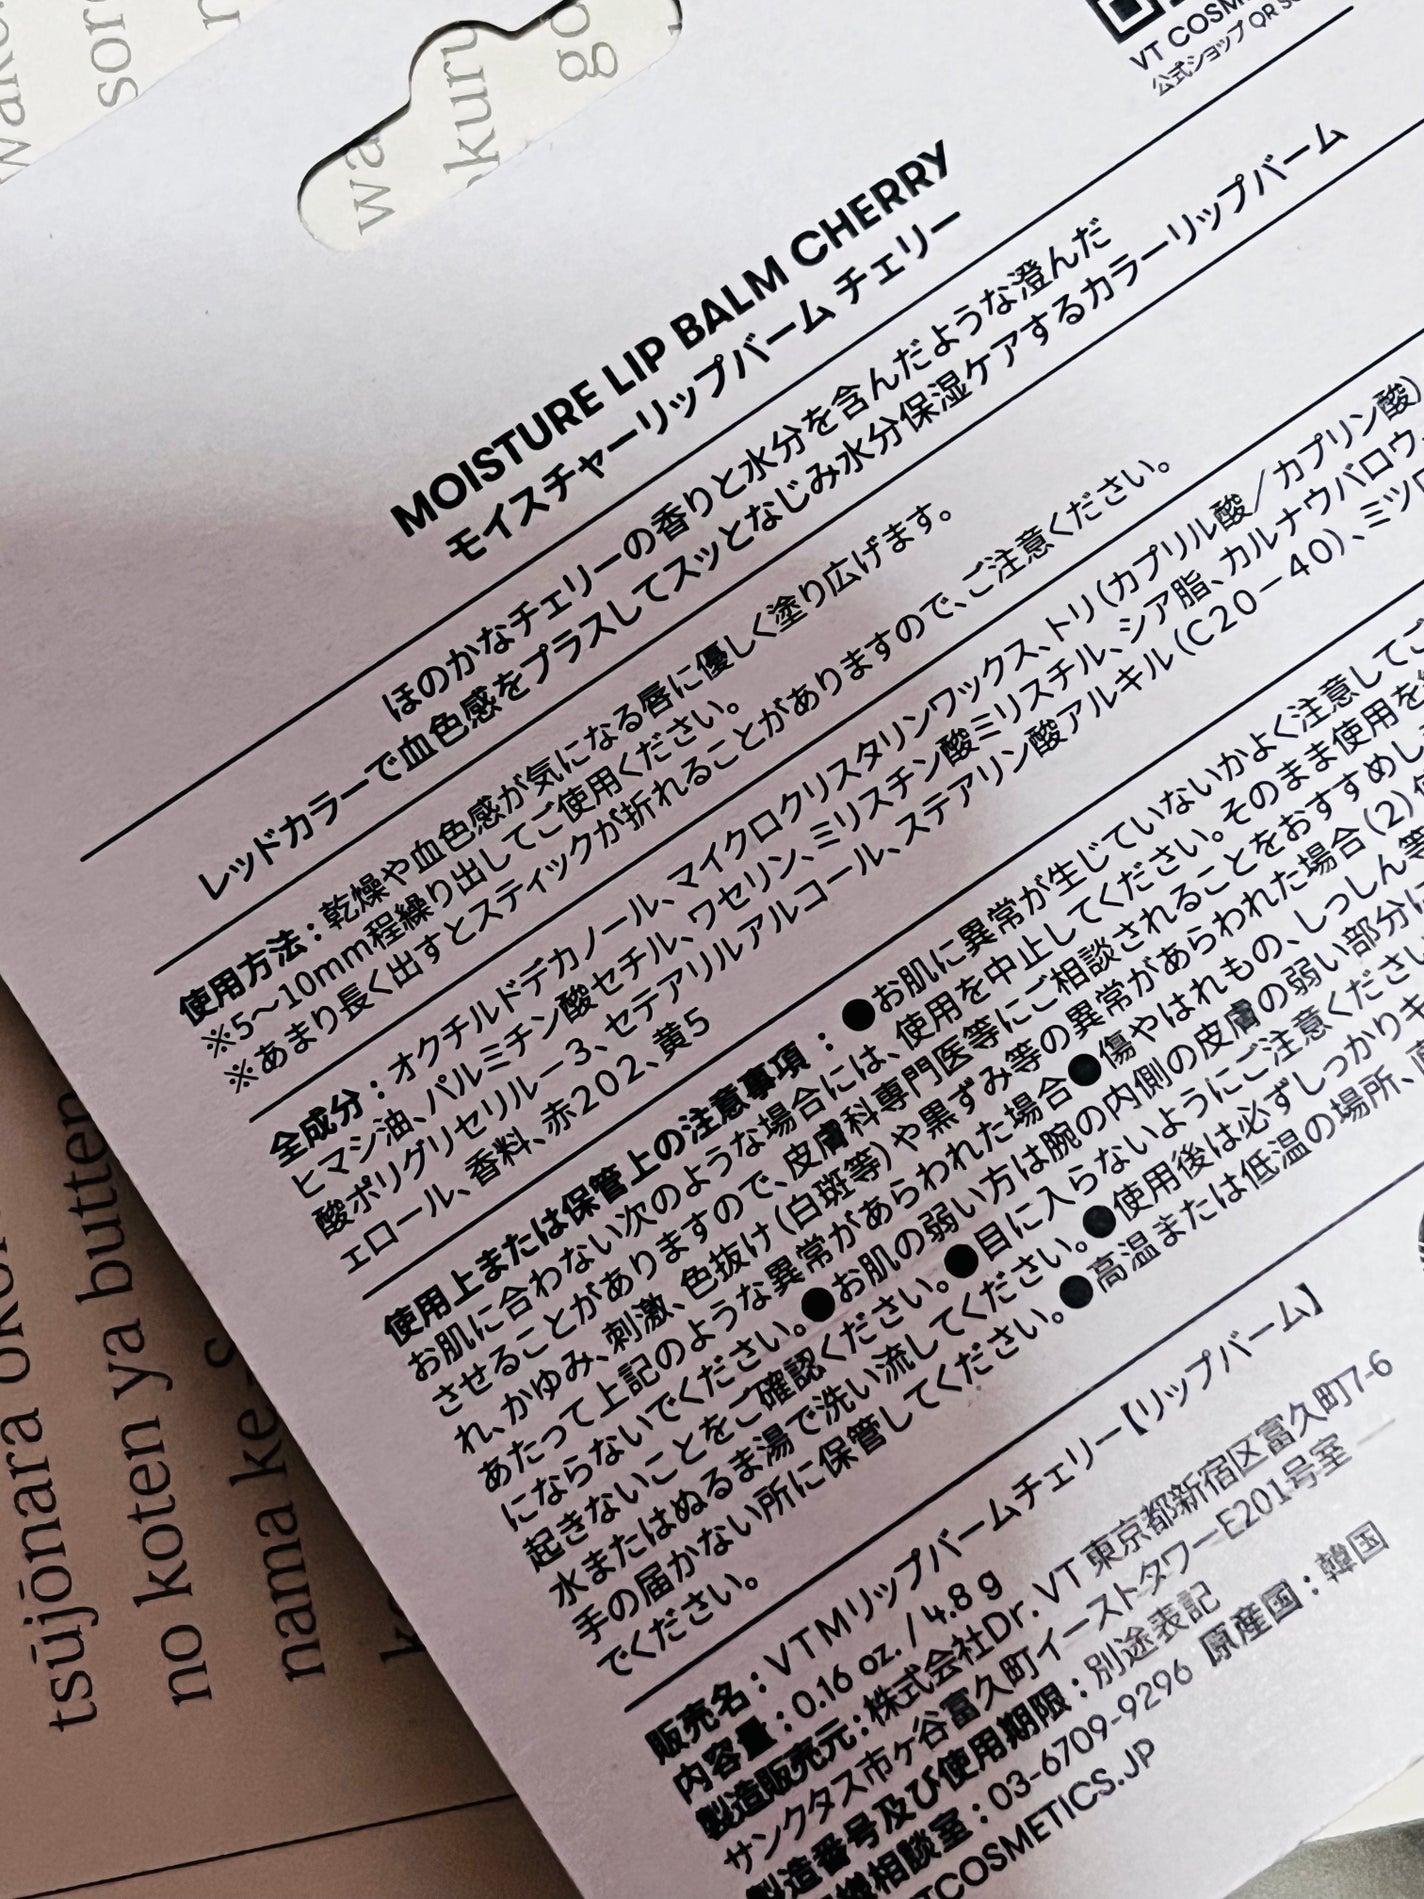 sor
wa
kury
go
VT COSM
公式ショップQR
MOISTURE LIP BALM CHERRY
モイスチャーリップバーム チェリー
ほのかなチェリーの香りと水分を含んだような澄んだ
レッドカラーで血色感をプラスしてスッとなじみ水分保湿ケアするカラーリップバーム
使用方法：乾燥や血色感が気になる唇に優しく塗り広げます。
※5〜10mm程繰り出してご使用ください。
※あまり長く出すとスティックが折れることがありますので、ご注意ください。
全成分：オクチルドデカノール、マイクロクリスタリンワックス、トリ（カプリル酸／カプリン酸）
ヒマシ油、パルミチン酸セチル、ワセリン、ミリスチン酸ミリスチル、シア脂、カルナウバロウ、
酸ポリグリセリル－3、セテアリルアルコール、ステアリン酸アルキル（C20－40）、ミツロ
ェロール、香料、赤202、黄5
使用上または保管上の注意事項：●お肌に異常が生じていないかよく注意してご
お肌に合わない次のような場合には、使用を中止してください。そのまま使用を
させることがありますので、皮膚科専門医等にご相談されることをおすすめし
れ、かゆみ、刺激、色抜け（白斑等）や黒ずみ等の異常があらわれた場合（2）
あたって上記のような異常があらわれた場合●傷やはれもの、しっしん等
にならないでください。●お肌の弱い方は腕の内側の皮膚の弱い部分に
起きないことをご確認ください。●目に入らないようにご注意ください
水またはぬるま湯で洗い流してください。●使用後は必ずしっかりキ
手の届かない所に保管してください。●高温または低温の場所、
でください。
販売名：VTMリップバームチェリー【リップバーム】
内容量：0.16 oz. / 4.8 g
製造販売元：株式会社Dr. VT 東京都新宿区富久町7-6
サンクタス市ヶ谷富久町イーストタワーE201号室
製造番号及び使用期限：別途表記
様相談室：03-6709-9296 原産国：韓国
TCOSMETICS.JP
tsūjōnara
no koten ya butten
nama ke